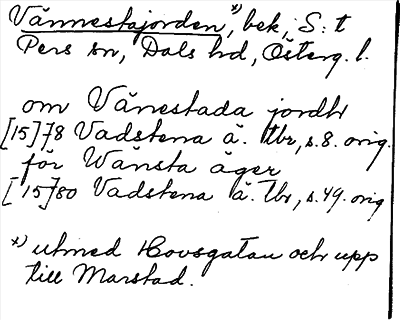 Vännestajorden*), bek, S:t
Pers sn, Dals hd, Österg. l.
om Vänestada jordh
[15]78 Vadstena ä. Tbr, s. 8. orig.
för Wänsta äger
[15]80 Vadstena ä. Tbr, s. 49. orig
*) utmed Hovsgatan och upp
till Marstad.